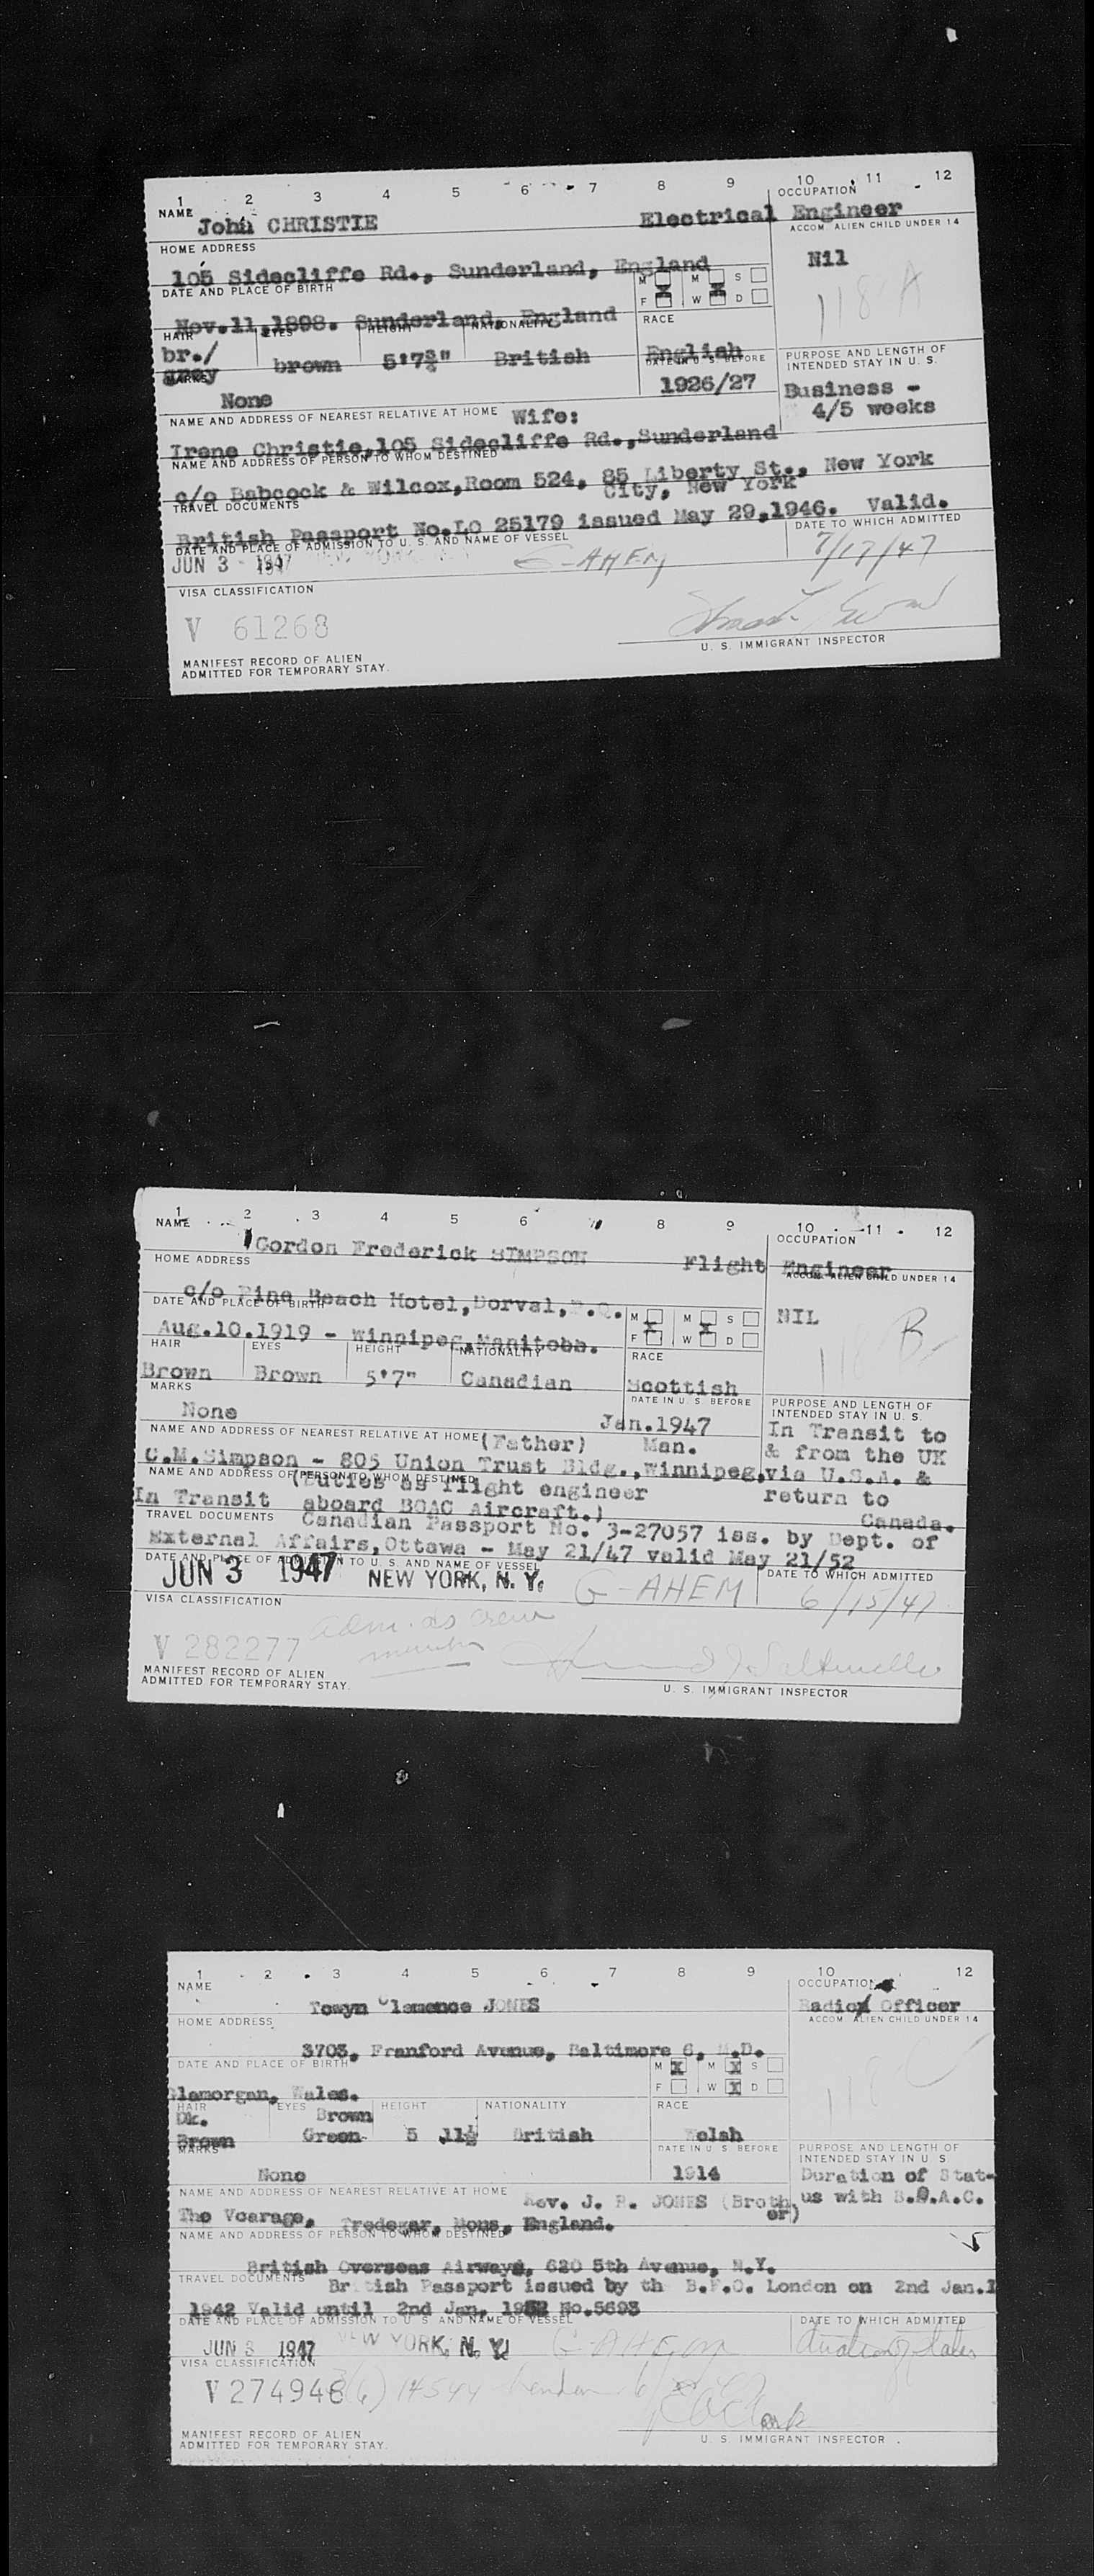 1 2 3 4 5 6 7 8 9 10 11 12
NAME OCCUPATION
John CHRISTIE Electrical Engineer
HOME ADDRESS ACCOM. ALIEN CHILD UNDER 14
105 Sidecliffe Rd., Sunderland, England Nil
DATE AND PLACE OF BIRTH M M S
118 A
F W D
Nov.11,1898. Sunderland, England
HAIR EYES HEIGHT NATIONALITY RACE
br./ gray brown 5'7¾" British English
MARKS DATE IN U. S. BEFORE PURPOSE AND LENGTH OF INTENDED STAY IN U. S.
None 1926/27 Business - 4/5 weeks
NAME AND ADDRESS OF NEAREST RELATIVE AT HOME Wife:
Irene Christie,105 Sidecliffe Rd.,Sunderland
NAME AND ADDRESS OF PERSON TO WHOM DESTINED
c/o Babcock & Wilcox,Room 524, 85 Liberty St., New York
City, New York
TRAVEL DOCUMENTS
British Passport No.LO 25179 issued May 29,1946. Valid.
DATE AND PLACE OF ADMISSION TO U. S. AND NAME OF VESSEL DATE TO WHICH ADMITTED
JUN 3 - 1947 G-AHEM 7/17/47
VISA CLASSIFICATION
V 61268
U. S. IMMIGRANT INSPECTOR
MANIFEST RECORD OF ALIEN
ADMITTED FOR TEMPORARY STAY.
1 2 3 4 5 6 7 8 9 10 11 12
NAME OCCUPATION
Gordon Frederick SIMPSON Flight Engineer
HOME ADDRESS ACCOM. ALIEN CHILD UNDER 14
c/o Pine Beach Hotel,Dorval,P.Q. NIL
DATE AND PLACE OF BIRTH M M S
118 B
F W D
Aug.10.1919 - Winnipeg,Manitoba.
HAIR EYES HEIGHT NATIONALITY RACE
Brown Brown 5'7" Canadian Scottish
MARKS DATE IN U. S. BEFORE PURPOSE AND LENGTH OF INTENDED STAY IN U. S.
None Jan.1947 In Transit to
NAME AND ADDRESS OF NEAREST RELATIVE AT HOME (Father) Man. & from the UK
C.M.Simpson - 805 Union Trust Bldg.,Winnipeg, via U.S.A. &
NAME AND ADDRESS OF PERSON TO WHOM DESTINED
(Duties as flight engineer return to
In Transit aboard BOAC Aircraft.) Canada.
TRAVEL DOCUMENTS Canadian Passport No. 3-27057 iss. by Dept. of
External Affairs,Ottawa - May 21/47 valid May 21/52
DATE AND PLACE OF ADMISSION TO U. S. AND NAME OF VESSEL DATE TO WHICH ADMITTED
JUN 3 1947 NEW YORK, N. Y. G-AHEM 6/15/47
VISA CLASSIFICATION
adm. as crew
V 282277 member
U. S. IMMIGRANT INSPECTOR
MANIFEST RECORD OF ALIEN
ADMITTED FOR TEMPORARY STAY.
1 2 3 4 5 6 7 8 9 10 12
NAME OCCUPATION
Towyn Clemence JONES Radio Officer
HOME ADDRESS ACCOM. ALIEN CHILD UNDER 14
3703, Franford Avenue, Baltimore 6, M.D.
DATE AND PLACE OF BIRTH M X M X S
118 C
F W X D
Glamorgan, Wales.
HAIR EYES HEIGHT NATIONALITY RACE
Dk. Brown
Brown Green 5 11½ British Welsh
MARKS DATE IN U. S. BEFORE PURPOSE AND LENGTH OF INTENDED STAY IN U. S.
None 1914 Duration of Stat-
NAME AND ADDRESS OF NEAREST RELATIVE AT HOME Rev. J. R. JONES (Brother) us with B.O.A.C.
The Vcarage, Tredegar, Mons, England.
NAME AND ADDRESS OF PERSON TO WHOM DESTINED
British Overseas Airways, 620 5th Avenue, N.Y.
TRAVEL DOCUMENTS British Passport issued by th B.F.O. London on 2nd Jan.1
1942 Valid until 2nd Jan. 1952 No.5693
DATE AND PLACE OF ADMISSION TO U. S. AND NAME OF VESSEL DATE TO WHICH ADMITTED
JUN 3 1947 NEW YORK, N. Y. G-AHEM
VISA CLASSIFICATION
V 274946
U. S. IMMIGRANT INSPECTOR
MANIFEST RECORD OF ALIEN
ADMITTED FOR TEMPORARY STAY.